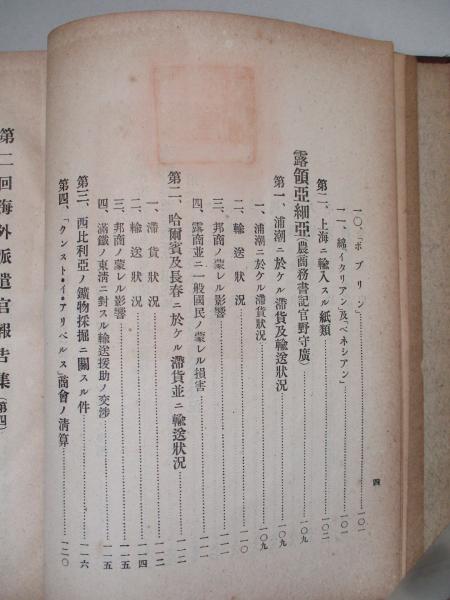 一〇、「ポプリン」…………一〇一
一一、綿イタリアン及「ベネシアン」…………一〇一
第二、上海ニ輸入スル紙類…………一〇二
露領亞細亞（農商務書記官野守廣）
第一、浦潮ニ於ケル滯貨及輸送狀況…………一〇九
一、浦潮ニ於ケル滯貨狀況…………一〇九
二、輸送狀況…………一一〇
三、邦商ノ蒙レル影響…………一一一
四、露商並ニ一般國民ノ蒙レル損害…………一一一
第二、哈爾賓及長春ニ於ケル滯貨並ニ輸送狀況…………一一二
一、滯貨狀況…………一一二
二、輸送狀況…………一一四
三、邦商ノ蒙レル影響…………一一五
四、滿鐵ノ東淸ニ對スル輸送援助ノ交涉…………一一五
第三、西比利亞ノ鑛物採掘ニ關スル件…………一一六
第四、「クンスト・イ・アリベルス」商會ノ淸算…………一二〇
四
第二回海外派遣官報告集（第四）